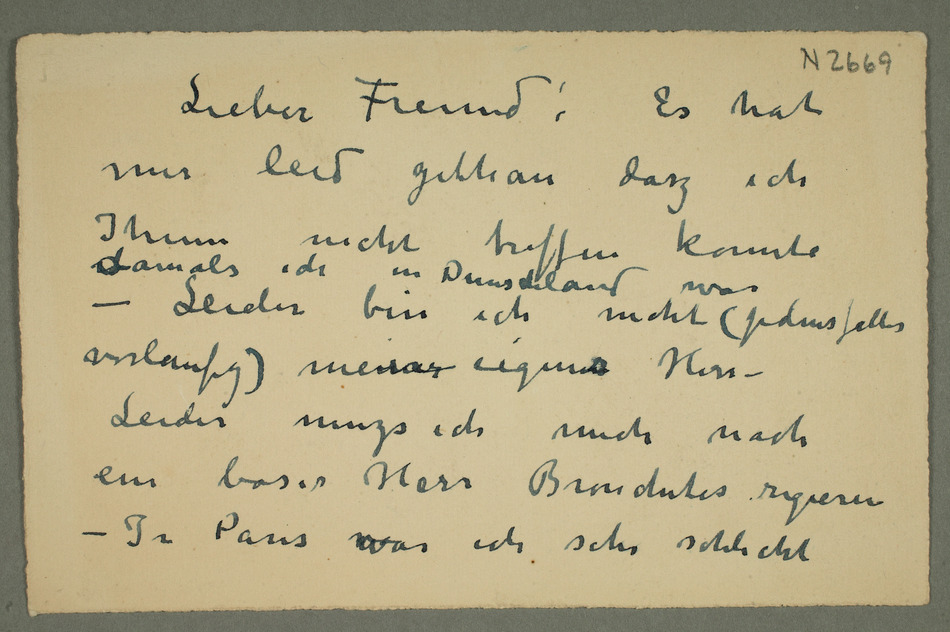 N 2669
Lieber Freund! Es hat
mir leid gethan dasz ich
Ihnen nicht treffen konnte
damals ich in war
— Leider bin ich nicht (jedensfalls
vorlaufig) meiner eigener Herr—
Leider muzs ich mich nach
ein boser Herr regieren
— In Paris war ich sehr schlecht